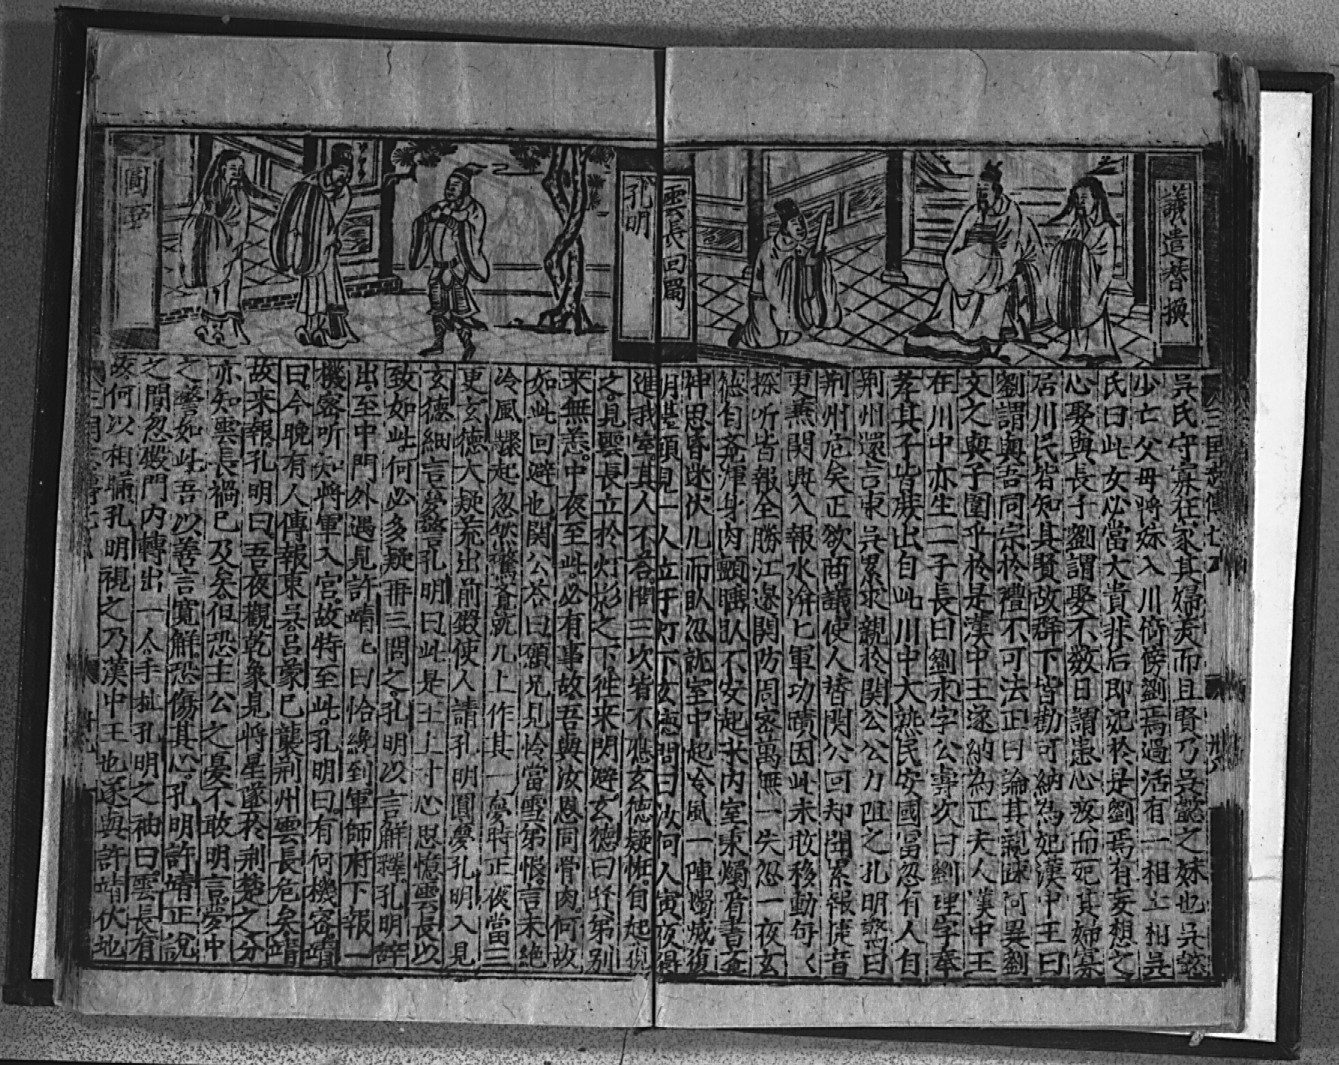 議遣替換
雲長回蜀
吳氏守寡在家其婦美而且賢乃吳懿之妹也吳懿
少亡父母將妹入川倚傍劉焉過活有一相士相吳
氏曰此女必當大貴非后即妃於是劉焉有妄想之
心娶與長子劉謂娶不数日謂患心疫而死其婦寡
居川民皆知其賢故群下皆勸可納為妃漢中王曰
劉謂與吾同宗於禮不可法正曰論其親踈何異劉
文之與子圉乎於是漢中王遂納為正夫人漢中王
在川中亦生二子長曰劉永字公壽次曰劉理字奉
孝其子皆後出自此川中大熟民安國富忽有人自
荊州還言東吳累求親於関公公力阻之孔明驚曰
荊州危矣正欲商議使人替関公回却聞累報捷音
更兼関興入報水渰七軍功蹟因此未敢移動每人
探听皆報全勝江邊関防周密萬無一失忽一夜玄
德自斉渾身肉顫睡臥不安起來內室秉燭看書
神思昏迷伏几而臥忽就室中起冷風一陣燭威復
明基頭見一人立于灯下玄德問曰汝何人寅夜得
孔明
圓夢
進我室其人不答問三次皆不應玄德疑恠自起視
之見雲長立於灯影之下徃來閃避玄德曰贤弟別
來無恙中夜至此必有事故吾與汝恩同骨肉何故
如此回避也関公答曰願兄見怜當雪弟恨言未絶
冷風驟起忽然驚覺就几上作其一夢時正夜當三
更玄德大疑荒出前殿使人請孔明圓夢孔明入見
玄德細言夢警孔明曰此是王上寸心思憶雲長以
致如此何必多疑再三問之孔明以言解釋孔明辞
出至中門外遇見許靖靖曰恰纔到軍師府下報一
機密听知將軍入宮故特至此孔明曰有何機密靖
曰今晚有人傳報東吳呂蒙已襲荊州雲長危矣靖
故来報孔明曰吾夜觀乾象見將星墜於荊楚之分
亦知雲長禍已及矣但恐主公之憂不敢明言夢中
之警如此吾以善言寬解恐傷其心孔明許靖正說
之間忽殿門內轉出一人手扯孔明之袖曰雲長有
故何以相瞞孔明視之乃漢中王也遂與許靖伏地